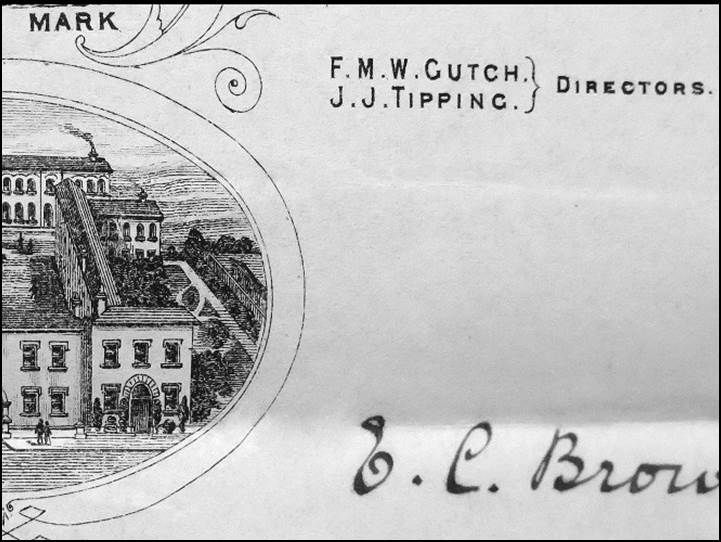 MARK
F. M. W. GUTCH.
J. J. TIPPING. } DIRECTORS.
E. C. Brow